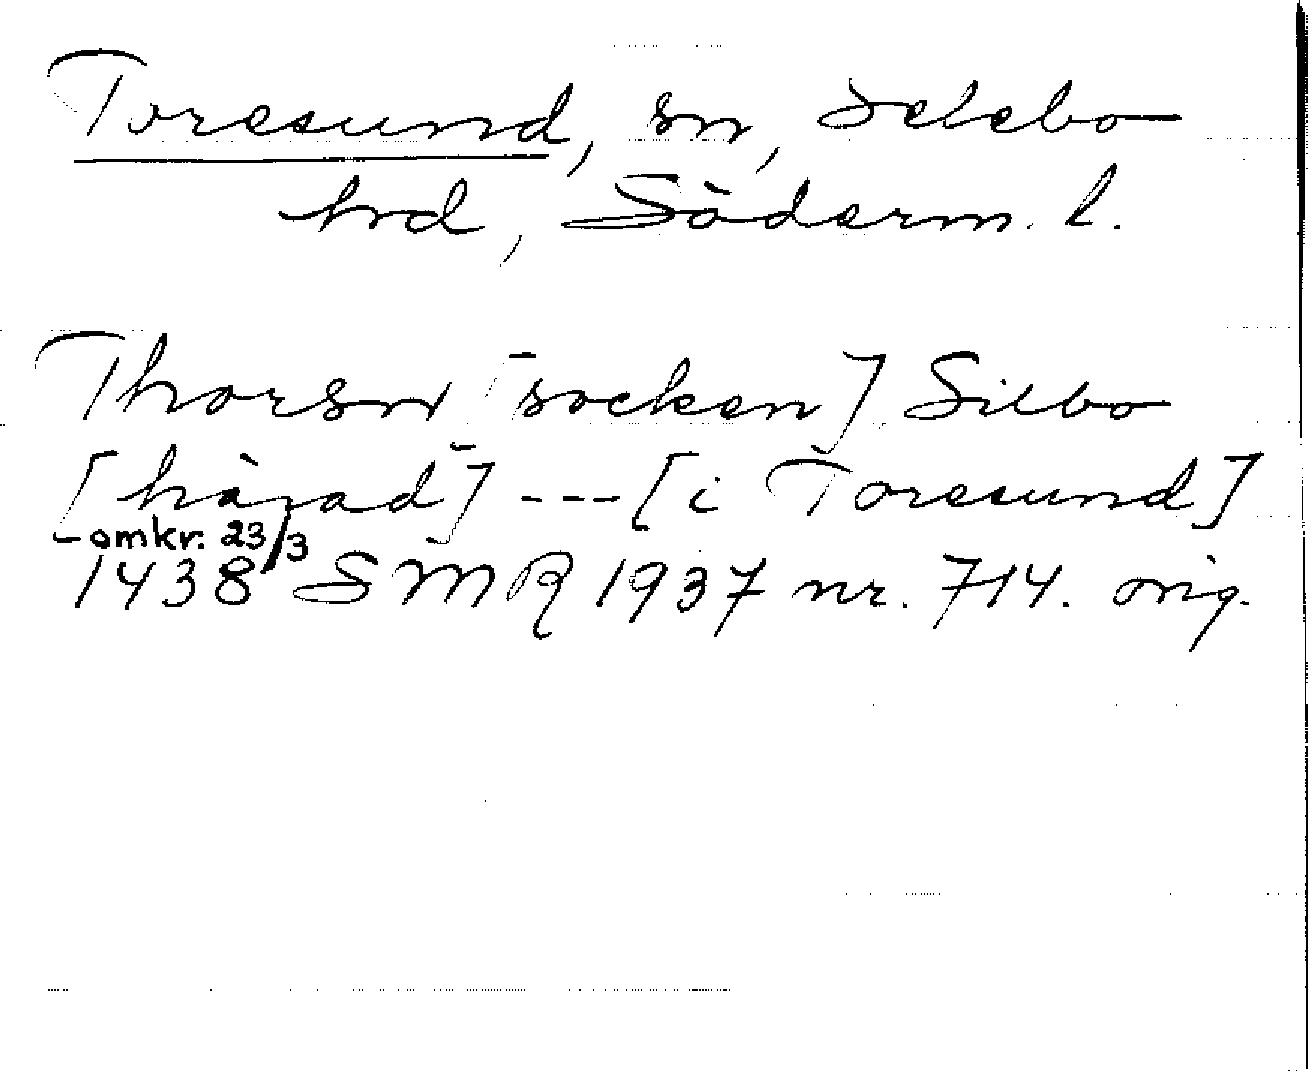 Toresund, sn, Selebo
hrd, Söderm. l.
Thorsn [socken] Silbo
[härad] --- [i Toresund]
omkr. 23/3
1438 SMR 1937 nr. 714. orig.